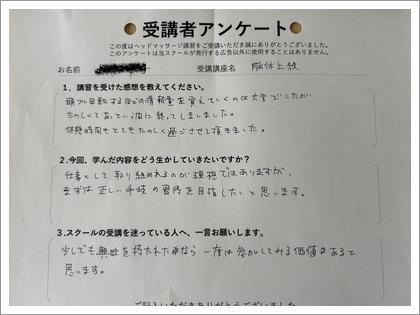 受講者アンケート
この度はヘッドマッサージ講習をご受講いただき誠にありがとうございました。
このアンケートは当スクールが発行する広告以外に使用することはありません。
お名前 受講講座名
1、講習を受けた感想を教えてください。
頭フル回転するほどの情報量を覚えていくのは大変でしたが
たのしくてあっという間に終ってしまいました。
休憩時間もとてもたのしく過ごさせて頂きました。
2.今回、学んだ内容をどう生かしていきたいですか？
仕事として取り組めれるのが理想ではありますが、
まずは正しい手技の習得を目指したいと思います。
3.スクールの受講を迷っている人へ、一言お願いします。
少しでも興味を持たれたなら一度は参加してみる価値はあると
思います。
ご記入いただきありがとうございました